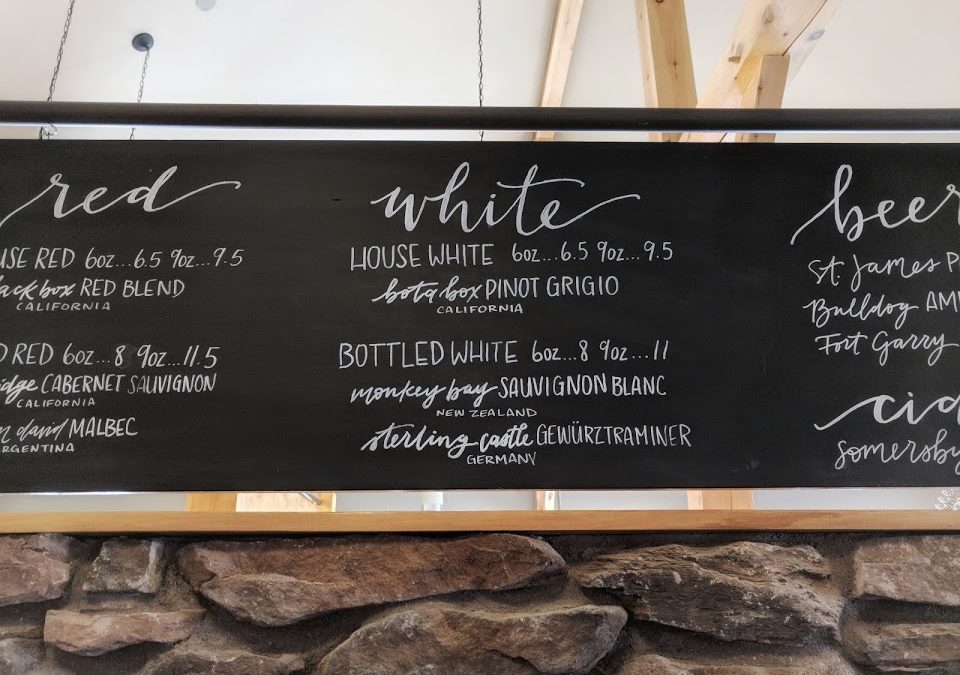 red
USE RED 6oz...6.5 9oz...9.5
ack box RED BLEND
CALIFORNIA
D RED 6oz...8 9oz...11.5
idge CABERNET SAUVIGNON
CALIFORNIA
n david MALBEC
RGENTINA
white
HOUSE WHITE 6oz...6.5 9oz...9.5
bota box PINOT GRIGIO
CALIFORNIA
BOTTLED WHITE 6oz...8 9oz...11
monkey bay SAUVIGNON BLANC
NEW ZEALAND
sterling castle GEWÜRZTRAMINER
GERMANY
beer
St. James P
Bulldog AM
Fort Garry
cid
somersby